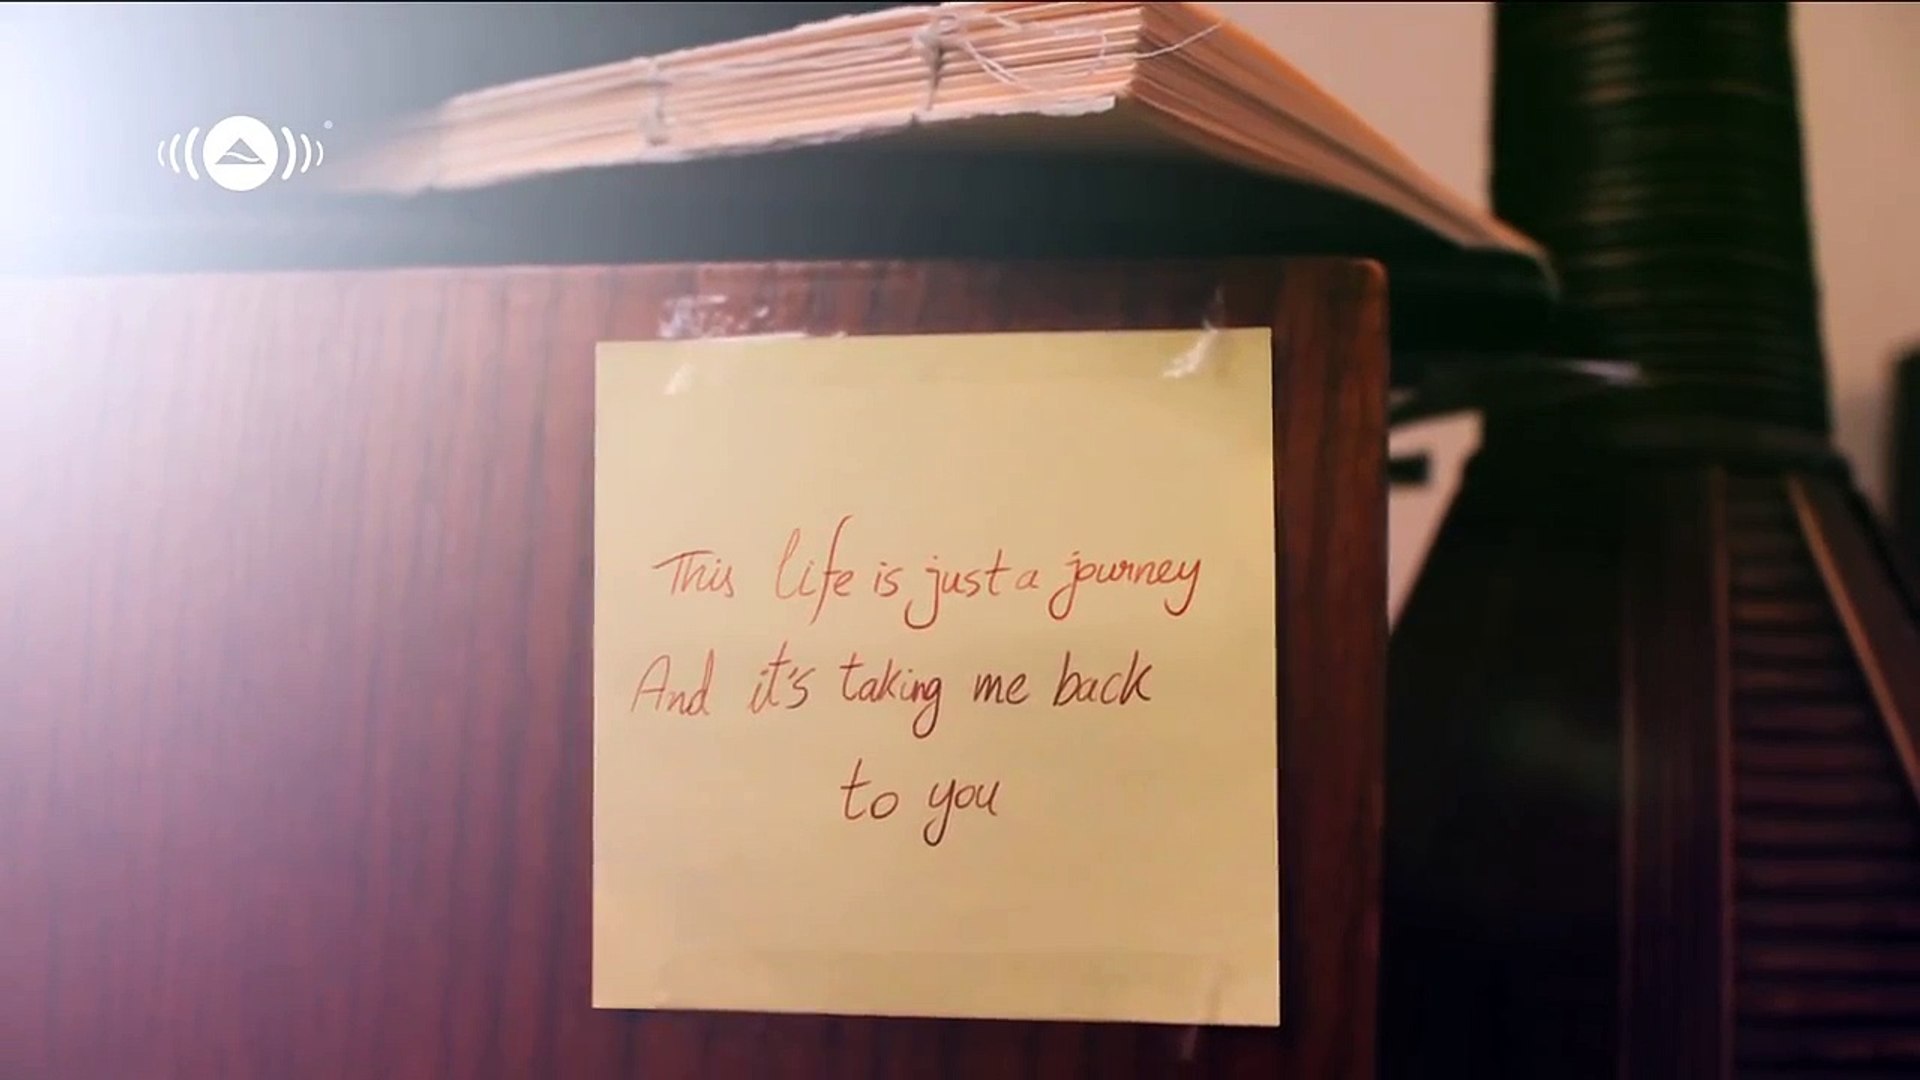 This life is just a journey
And it's taking me back
to you